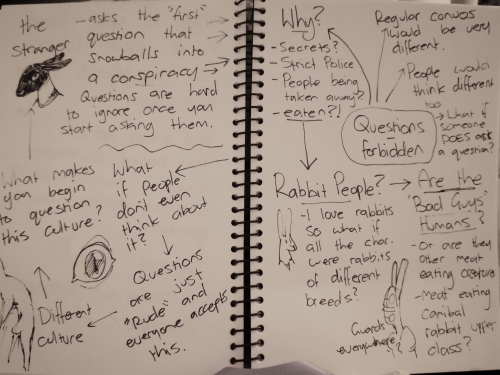 the
Stranger
- asks the "first"
question that
snowballs into
a conspiracy
Questions are hard
to ignore once you
start asking them.
What makes
you begin
to question
this culture?
What
if people
don't even
think about
it?
Questions
are just
"Rude" and
everyone accepts
this.
Different
culture
Why?
- Secrets?
- Strict Police
- People being
taken away?
- eaten?!
Regular convos
would be very
different.
People would
think different
too
Questions
forbidden
What if
someone
DOES ask
a question?
Rabbit People?
- I love rabbits
so what if
all the char.
were rabbits
of different
breeds?
Guards
everywhere
Are the
"Bad Guys"
Humans?
- Or are they
other meat
eating creature
- Meat eating
canibal
rabbit upper
class?